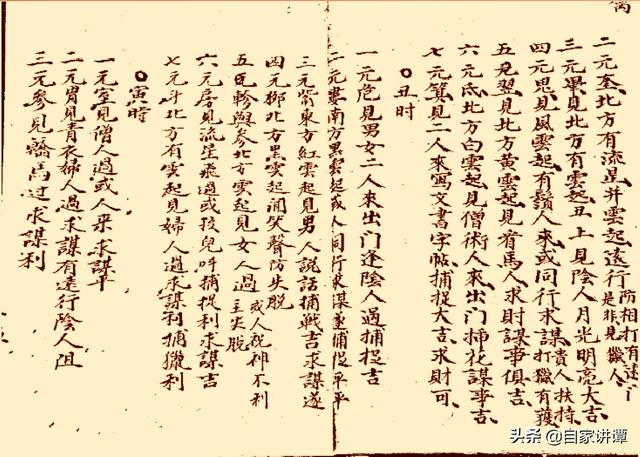 二元奎北方有流星并雲起遠行防相打有遠门
是非見獵人
三元畢見北方有雲起丑上見陰人月光明亮大吉
四元思見風雲起有讚人來或同行求謀貴人扶持
打獵有獲
五元翌見北方黃雲起見着馬人求財謀事俱吉
六元氐北方白雲起見僧術人來出门插花謀事吉
七元箕見二人來寫文書字帖捕捉大吉求財可
丑时
一元危見男女二人來出门逢陰人過捕捉吉
二元婁南方黑雲起或人同行求謀遂捕捉平平
三元觜東方紅雲起見男人説話捕戰吉求謀遂
四元柳北方黑雲起闻哭聲防失脱
五元軫與參北方雲起見女人過或人祝神不利
主失脱
六元房見流星飛過或孩兒呼捕捉利求謀吉
七元斗北方有雲起見婦人過求謀利捕獵利
寅時
一元室見僧人過或人來求謀平
二元胃見青衣婦人過求謀有遠行陰人阻
三元參見騎馬过求謀利
头条 @自家讲谭